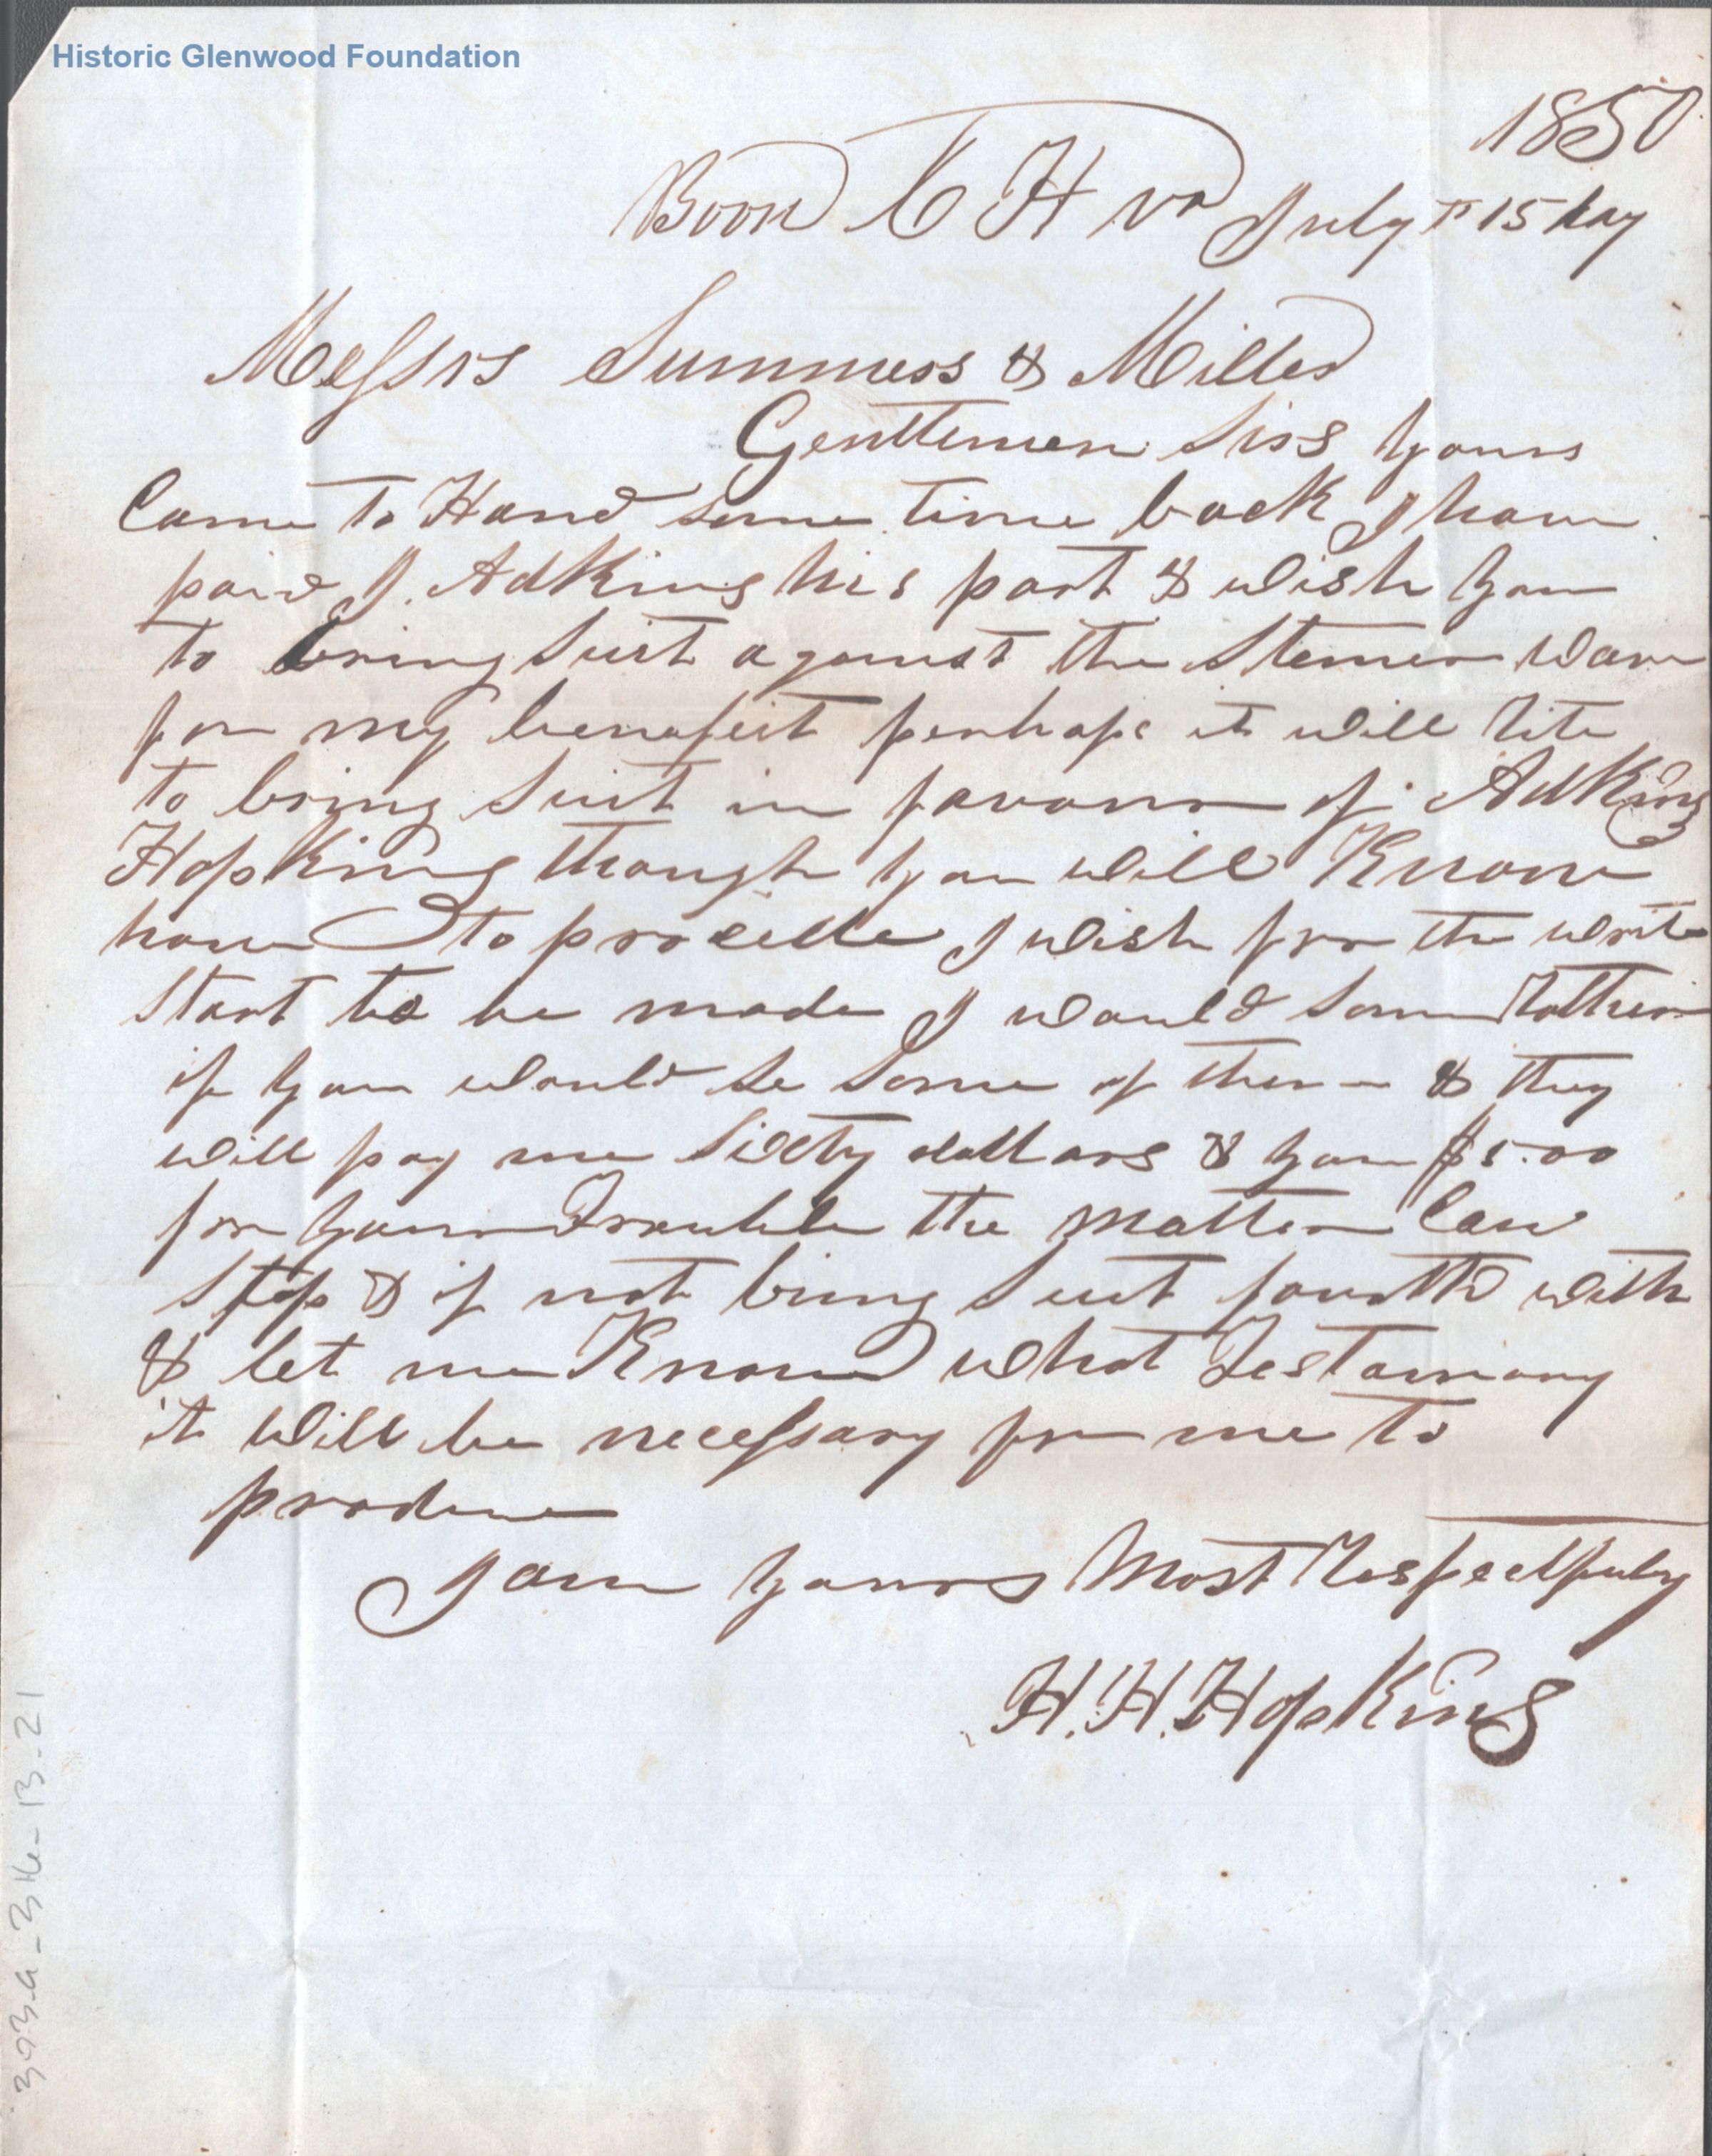 Historic Glenwood Foundation
1850
Boon C H va July th 15 day
Messrs Summers & Miller
Gentlemen Sirs Yours
Came to Hand some time back I have
paid J. Adkins his part & wish you
to bring Suit against the Stemer
for my benefeit perhaps it will
to bring Suit in favour of Adkins
Hopkins though you will Know
how to procede I wish for the write
Start to be made I would some Rather
if you would se Some of them & they
will pay me Sixty dollars & you $5.00
for your Trouble the matter Can
Stop & if not bring Suit fourth with
& let me Know what Testamony
it will be necessary for me to
produce
I am yours Most Respectfuly
H. H. Hopkins